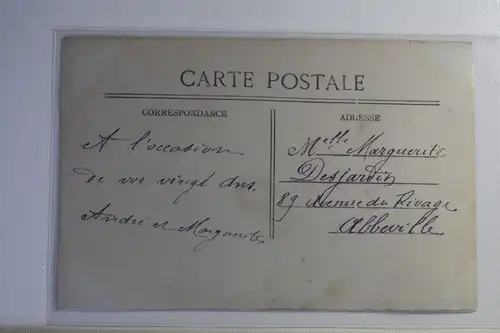 CARTE POSTALE
CORRESPONDANCE
A l'occasion
de vos vingt ans.
André et Marguerite
ADRESSE
Melle Marguerite
Desjardin
89 Avenue du Rivage
Abbeville